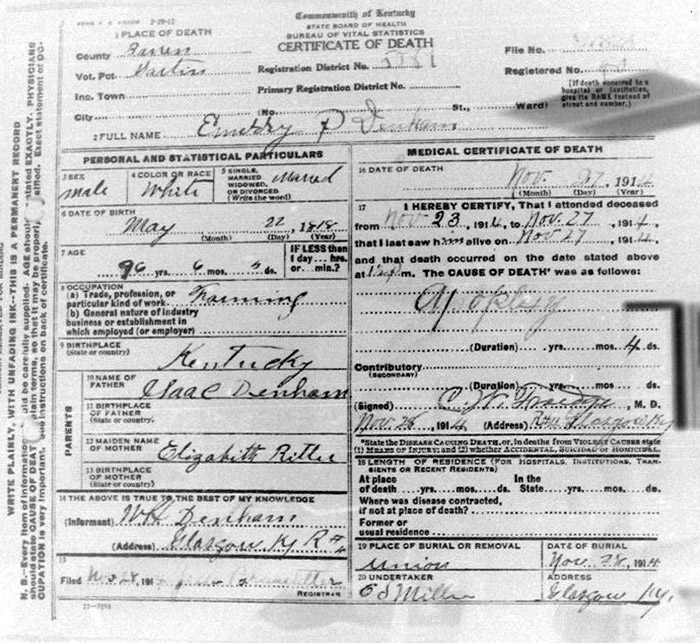 FORM V.S. 2-20-12
Commonwealth of Kentucky
STATE BOARD OF HEALTH
BUREAU OF VITAL STATISTICS
CERTIFICATE OF DEATH
1 PLACE OF DEATH
County
Vot. Pct.
Inc. Town
City (No. St., Ward)
Registration District No.
Primary Registration District No.
File No.
Registered No.
(If death occurred in a
hospital or institution,
give its NAME instead of
street and number.)
2 FULL NAME Emery P Denham
PERSONAL AND STATISTICAL PARTICULARS
3 SEX male
4 COLOR OR RACE White
5 SINGLE, MARRIED WIDOWED, OR DIVORCED (Write the word) Married
6 DATE OF BIRTH
May 22, 1818
(Month) (Day) (Year)
7 AGE
96 yrs. 6 mos. 5 ds.
IF LESS than
1 day — hrs.
or — min.?
8 OCCUPATION
(a) Trade, profession, or
particular kind of work Farming
(b) General nature of industry
business or establishment in
which employed (or employer)
9 BIRTHPLACE
(State or country) Kentucky
PARENTS
10 NAME OF
FATHER Isaac Denham
11 BIRTHPLACE
OF FATHER
(State or country)
12 MAIDEN NAME
OF MOTHER Elizabeth Ritter
13 BIRTHPLACE
OF MOTHER
(State or country)
14 THE ABOVE IS TRUE TO THE BEST OF MY KNOWLEDGE
(Informant) Denham
(Address) Glasgow Ky R#4
15
Filed Nov 28, 191
REGISTRAR
MEDICAL CERTIFICATE OF DEATH
16 DATE OF DEATH
Nov. 27, 1914
(Month) (Day) (Year)
17 I HEREBY CERTIFY, That I attended deceased
from Nov 23, 1914, to Nov. 27, 1914,
that I last saw him alive on Nov 27, 1914,
and that death occurred on the date stated above
at m. The CAUSE OF DEATH* was as follows:
Apoplexy
(Duration) yrs. mos. 4 ds.
Contributory
(SECONDARY)
(Duration) yrs. mos. ds.
(Signed) M. D.
Nov. 28, 1914 (Address) Glasgow Ky
*State the DISEASE CAUSING DEATH, or, in deaths from VIOLENT CAUSES state
(1) MEANS OF INJURY; and (2) whether ACCIDENTAL, SUICIDAL or HOMICIDAL.
18 LENGTH OF RESIDENCE (FOR HOSPITALS, INSTITUTIONS, TRANSIENTS OR RECENT RESIDENTS)
At place
of death yrs. mos. ds.
In the
State yrs. mos. ds.
Where was disease contracted,
if not at place of death?
Former or
usual residence
19 PLACE OF BURIAL OR REMOVAL
Union
DATE OF BURIAL
Nov. 28, 1914
20 UNDERTAKER
E S Miller
ADDRESS
Glasgow Ky.
WRITE PLAINLY, WITH UNFADING INK—THIS IS A PERMANENT RECORD